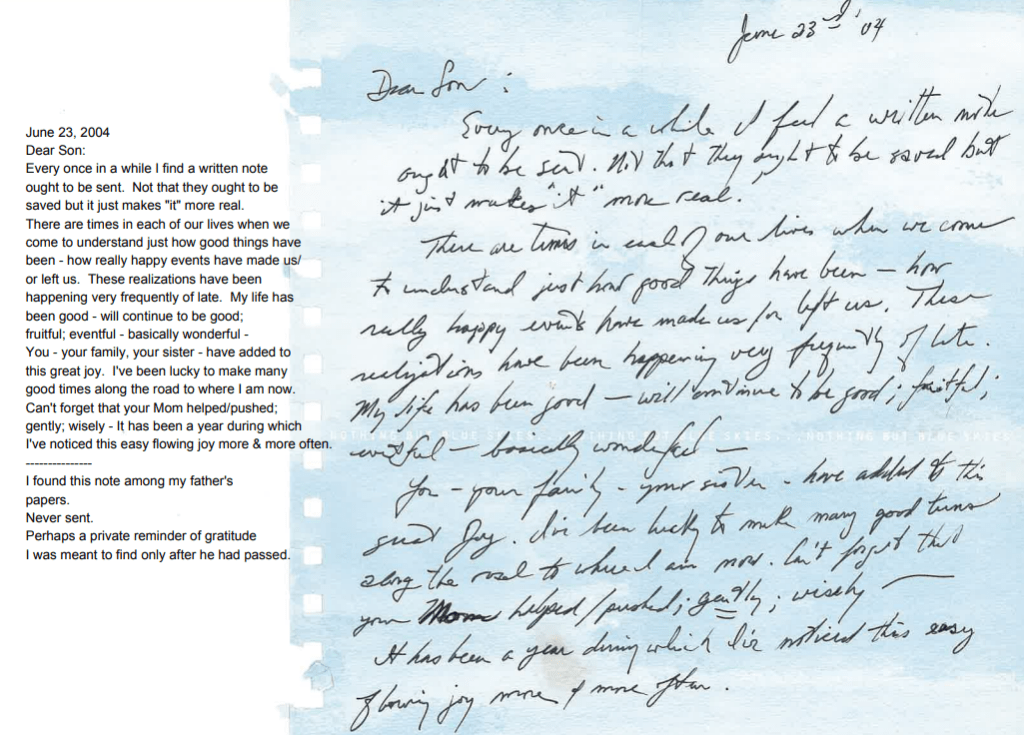 June 23, 2004
Dear Son:
Every once in a while I find a written note
ought to be sent. Not that they ought to be
saved but it just makes "it" more real.
There are times in each of our lives when we
come to understand just how good things have
been - how really happy events have made us/
or left us. These realizations have been
happening very frequently of late. My life has
been good - will continue to be good;
fruitful; eventful - basically wonderful -
You - your family, your sister - have added to
this great joy. I've been lucky to make many
good times along the road to where I am now.
Can't forget that your Mom helped/pushed;
gently; wisely - It has been a year during which
I've noticed this easy flowing joy more & more often.
---------------
I found this note among my father's
papers.
Never sent.
Perhaps a private reminder of gratitude
I was meant to find only after he had passed.
June 23rd '04
Dear Son :
Every once in a while I feel a written note
ought to be sent. Not that they ought to be saved but
it just makes "it" more real.
There are times in each of our lives when we come
to understand just how good things have been — how
really happy events have made us/or left us. These
realizations have been happening very frequently of late.
My life has been good — will continue to be good; fruitful;
NOTHING BUT BLUE SKIES...NOTHING BUT BLUE SKIES...NOTHING BUT BLUE SKIES
eventful — basically wonderful —
You - your family - your sister - have added to this
great Joy. I've been lucky to make many good turns
along the road to where I am now. Can't forget that
your Mom helped/pushed; gently; wisely —
It has been a year during which I've noticed this easy
flowing joy more & more often.